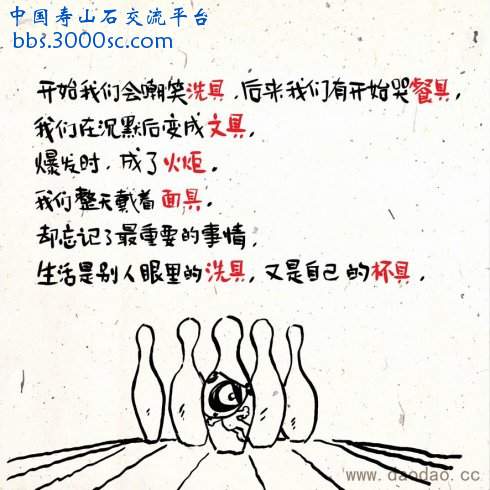 中国寿山石交流平台
bbs.3000sc.com
开始我们会嘲笑洗具,后来我们有开始哭餐具,
我们在沉默后变成文具,
爆发时,成了火炬,
我们整天戴着面具,
却忘记了最重要的事情,
生活是别人眼里的洗具,又是自己的杯具,
www.daodao.cc